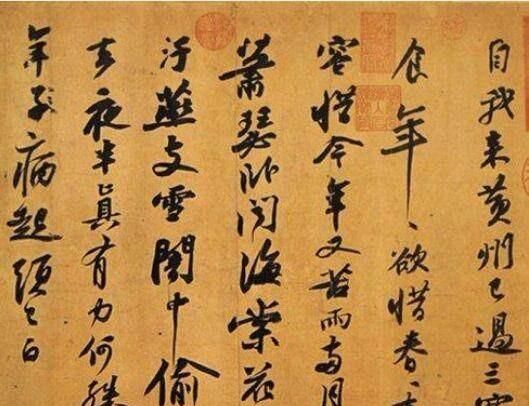 自我来黄州已過三寒
食年〻欲惜春〻
容惜今年又苦雨兩月
蕭瑟卧聞海棠花
汙燕支雪闇中偷
去夜半真有力何殊
年子病起須已白